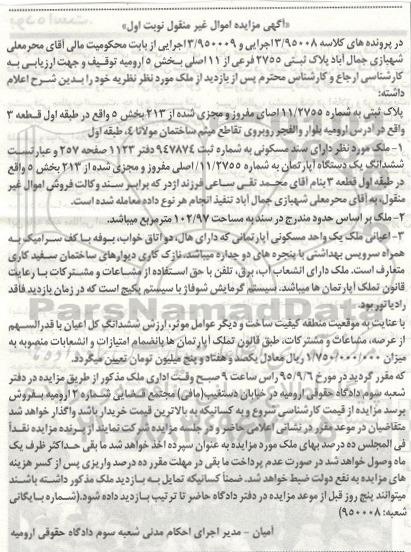 «آگهی مزایده اموال غیر منقول نوبت اول»
در پرونده های کلاسه ۳/۹۵۰۰۸ اجرایی و ۳/۹۵۰۰۰۹ اجرایی از بابت محکومیت مالی آقای محرمعلی
شهبازی جمال آباد پلاک ثبتی ۲۷۵۵ فرعی از ۱۱ اصلی بخش ۵ ارومیه توقیف و جهت ارزیابی به
کارشناسی ارجاع و کارشناس محترم پس از بازدید از ملک مورد نظر نظریه خود را بدین شرح اعلام
داشته:
پلاک ثبتی به شماره ۱۱/۲۷۵۵ اصلی مفروز و مجزی شده از ۲۱۳ بخش ۵ واقع در طبقه اول قطعه ۳
واقع در آدرس ارومیه بلوار والفجر روبروی تقاطع میثم ساختمان مولانا ۴، طبقه اول
۱- ملک مورد نظر دارای سند مسکونی به شماره ثبت ۹۴۷۸۷۴ دفتر ۱۱۲۳ صفحه ۲۵۷ و عبارتست
ششدانگ یک دستگاه آپارتمان به شماره ۱۱/۲۷۵۵ اصلی مفروز و مجزی شده از ۲۱۳ بخش ۵ واقع
در طبقه اول قطعه ۳ بنام آقای محمد تقی ساعی فرزند اژدر که برابر سند وکالت فروش اموال غیر
منقول، به آقای محرمعلی شهبازی جمال آباد تنفیذ انجام هر نوع داده معامله شده است.
۲- ملک بر اساس حدود مندرج در سند به مساحت ۱۰۲/۹۷ مترمربع میباشد.
۳- اعیانی ملک یک واحد مسکونی آپارتمانی که دارای هال، دو اتاق خواب، بوفه با کف سرامیک به
همراه سرویس بهداشتی با پنجره های دو جداره میباشد. نازک کاری دیوارهای ساختمان سفید کاری
متعارف است. ملک دارای انشعاب آب، برق، تلفن با حق استفاده از مشاعات و مشترکات با رعایت
قانون تملک آپارتمان ها میباشد. سیستم گرمایش شوفاژ با سیستم پکیج است که در زمان بازدید فاقد
رادیاتور بود.
با عنایت به موقعیت منطقه کیفیت ساخت و دیگر عوامل موثر، ارزش ششدانگ کل اعیان با قدرالسهم
از عرصه، مشاعات و مشترکات، طبق قانون تملک آپارتمان ها بانضمام امتیازات و انشعابات منصوبه به
میزان ۱/۷۵۰/۰۰۰/۰۰۰ ریال معادل یکصد و هفتاد و پنج میلیون تومان تعیین میگردد.
که مقرر گردید در مورخ ۹۵/۹/۶ راس ساعت ۹ صبح وقت اداری ملک مذکور از طریق مزایده در دفتر
شعبه سوم دادگاه حقوقی ارومیه در خیابان دستغیب(مافی) مجتمع قضایی شماره ۲ ارومیه بفروش
برسد مزایده از قیمت کارشناسی شروع و به کسانیکه به بالاترین قیمت خریدار باشد واگذار خواهد شد
متقاضیان در موعد مقرر در نشانی اعلامی حاضر و در جلسه مزایده شرکت نمایند از برنده مزایده نقداً
فی المجلس ده درصد بهای ملک مورد مزایده به عنوان سپرده اخذ خواهد شد ما بقی حداکثر ظرف یک
ماه وصول خواهد شد در صورت عدم پرداخت ما بقی در مهلت مقرر ده درصد واریزی پس از کسر هزینه
های مزایده به نفع دولت ضبط خواهد شد. ضمناً کسانیکه تمایل به بازدید ملک مذکور داشته باشند
میتوانند پنج روز قبل از موعد مزایده در دفتر دادگاه حاضر تا ترتیب بازدید داده شود.(شماره بایگانی
شعبه: ۹۵۰۰۰۸)
آمیان - مدیر اجرای احکام مدنی شعبه سوم دادگاه حقوقی ارومیه
ParsNamadData